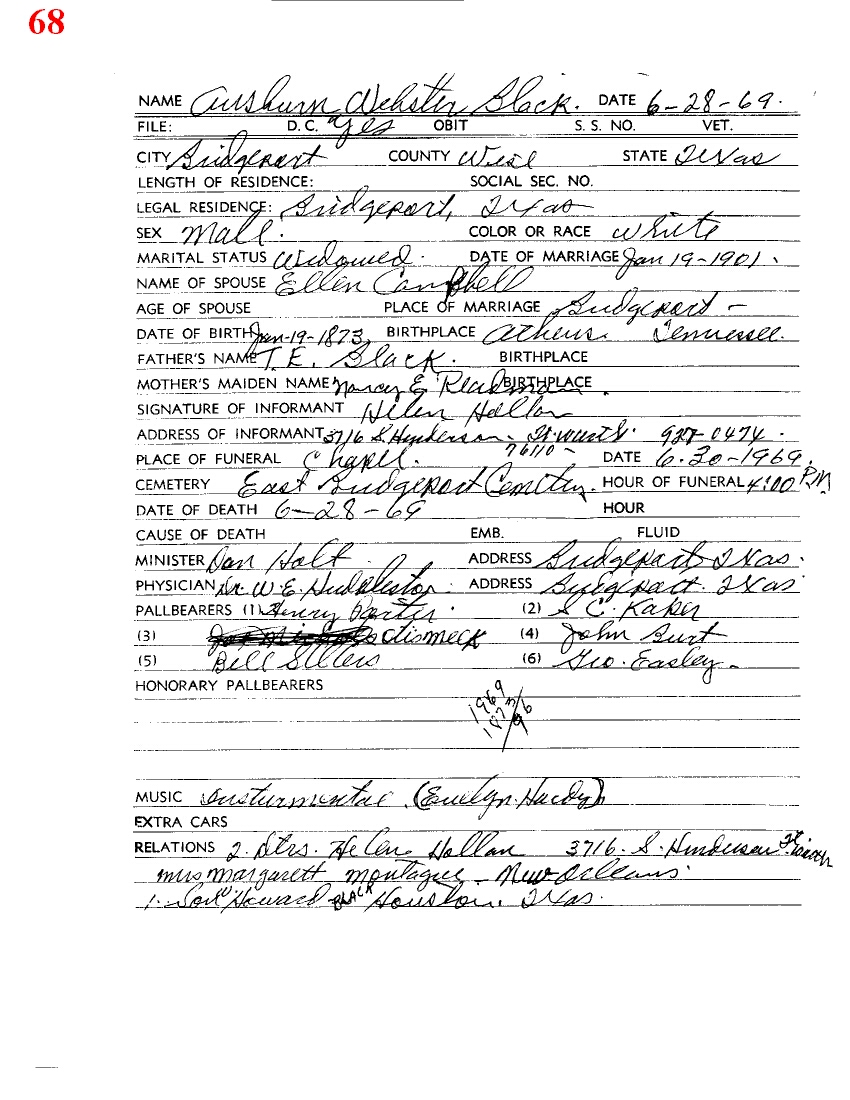 68
NAME Aushurn Webster Black. DATE 6-28-69.
FILE: D.C. Yes OBIT S.S. NO. VET.
CITY Bridgeport COUNTY Wise STATE Texas
LENGTH OF RESIDENCE: SOCIAL SEC. NO.
LEGAL RESIDENCE: Bridgeport, Texas
SEX Male. COLOR OR RACE White
MARITAL STATUS Widowed. DATE OF MARRIAGE Jan 19-1901.
NAME OF SPOUSE Ellen Campbell
AGE OF SPOUSE PLACE OF MARRIAGE Bridgeport -
DATE OF BIRTH Jan-19-1873, BIRTHPLACE Athens. Tennessee.
FATHER'S NAME T.E. Black. BIRTHPLACE
MOTHER'S MAIDEN NAME Nancy E. BIRTHPLACE
SIGNATURE OF INFORMANT Helen Hollan
ADDRESS OF INFORMANT 3716 S. Henderson - Ft. Worth. 927-0474.
76110 -
PLACE OF FUNERAL Chapel. DATE 6-30-1969.
CEMETERY East Bridgeport Cemetery. HOUR OF FUNERAL 4:00 PM
DATE OF DEATH 6-28-69 HOUR
CAUSE OF DEATH EMB. FLUID
MINISTER Dan Holt ADDRESS Bridgeport Texas.
PHYSICIAN Dr. W.E. Huddleston. ADDRESS Bridgeport. Texas
PALLBEARERS (1) Henry Porter. (2) S C. Kaker
(3) Otis meek (4) John Burt
(5) Bill Sellers (6) Geo. Easley -
HONORARY PALLBEARERS
1969
1873
96
MUSIC (Evelyn Hardy)
EXTRA CARS
RELATIONS 2. Dtrs. Helen Hollan 3716. S. Henderson Ft. Worth
mrs margarett montague - New Orleans.
1. Son Howard BLACK Houston, Texas.